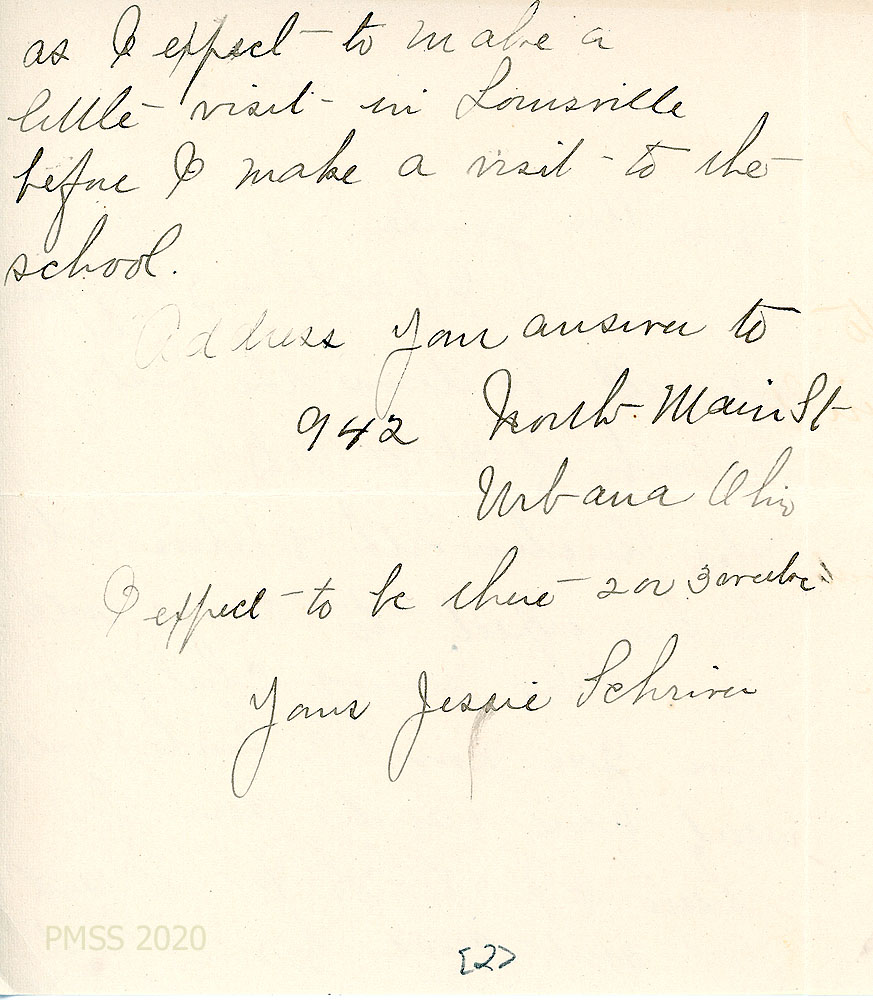 as I expect to make a
little visit in Louisville
before I make a visit to the
school.
Address your answer to
942 North Main St
Urbana Ohio
I expect to be there 2 or 3 weeks
Yours Jessie Schriver
PMSS 2020
[2>